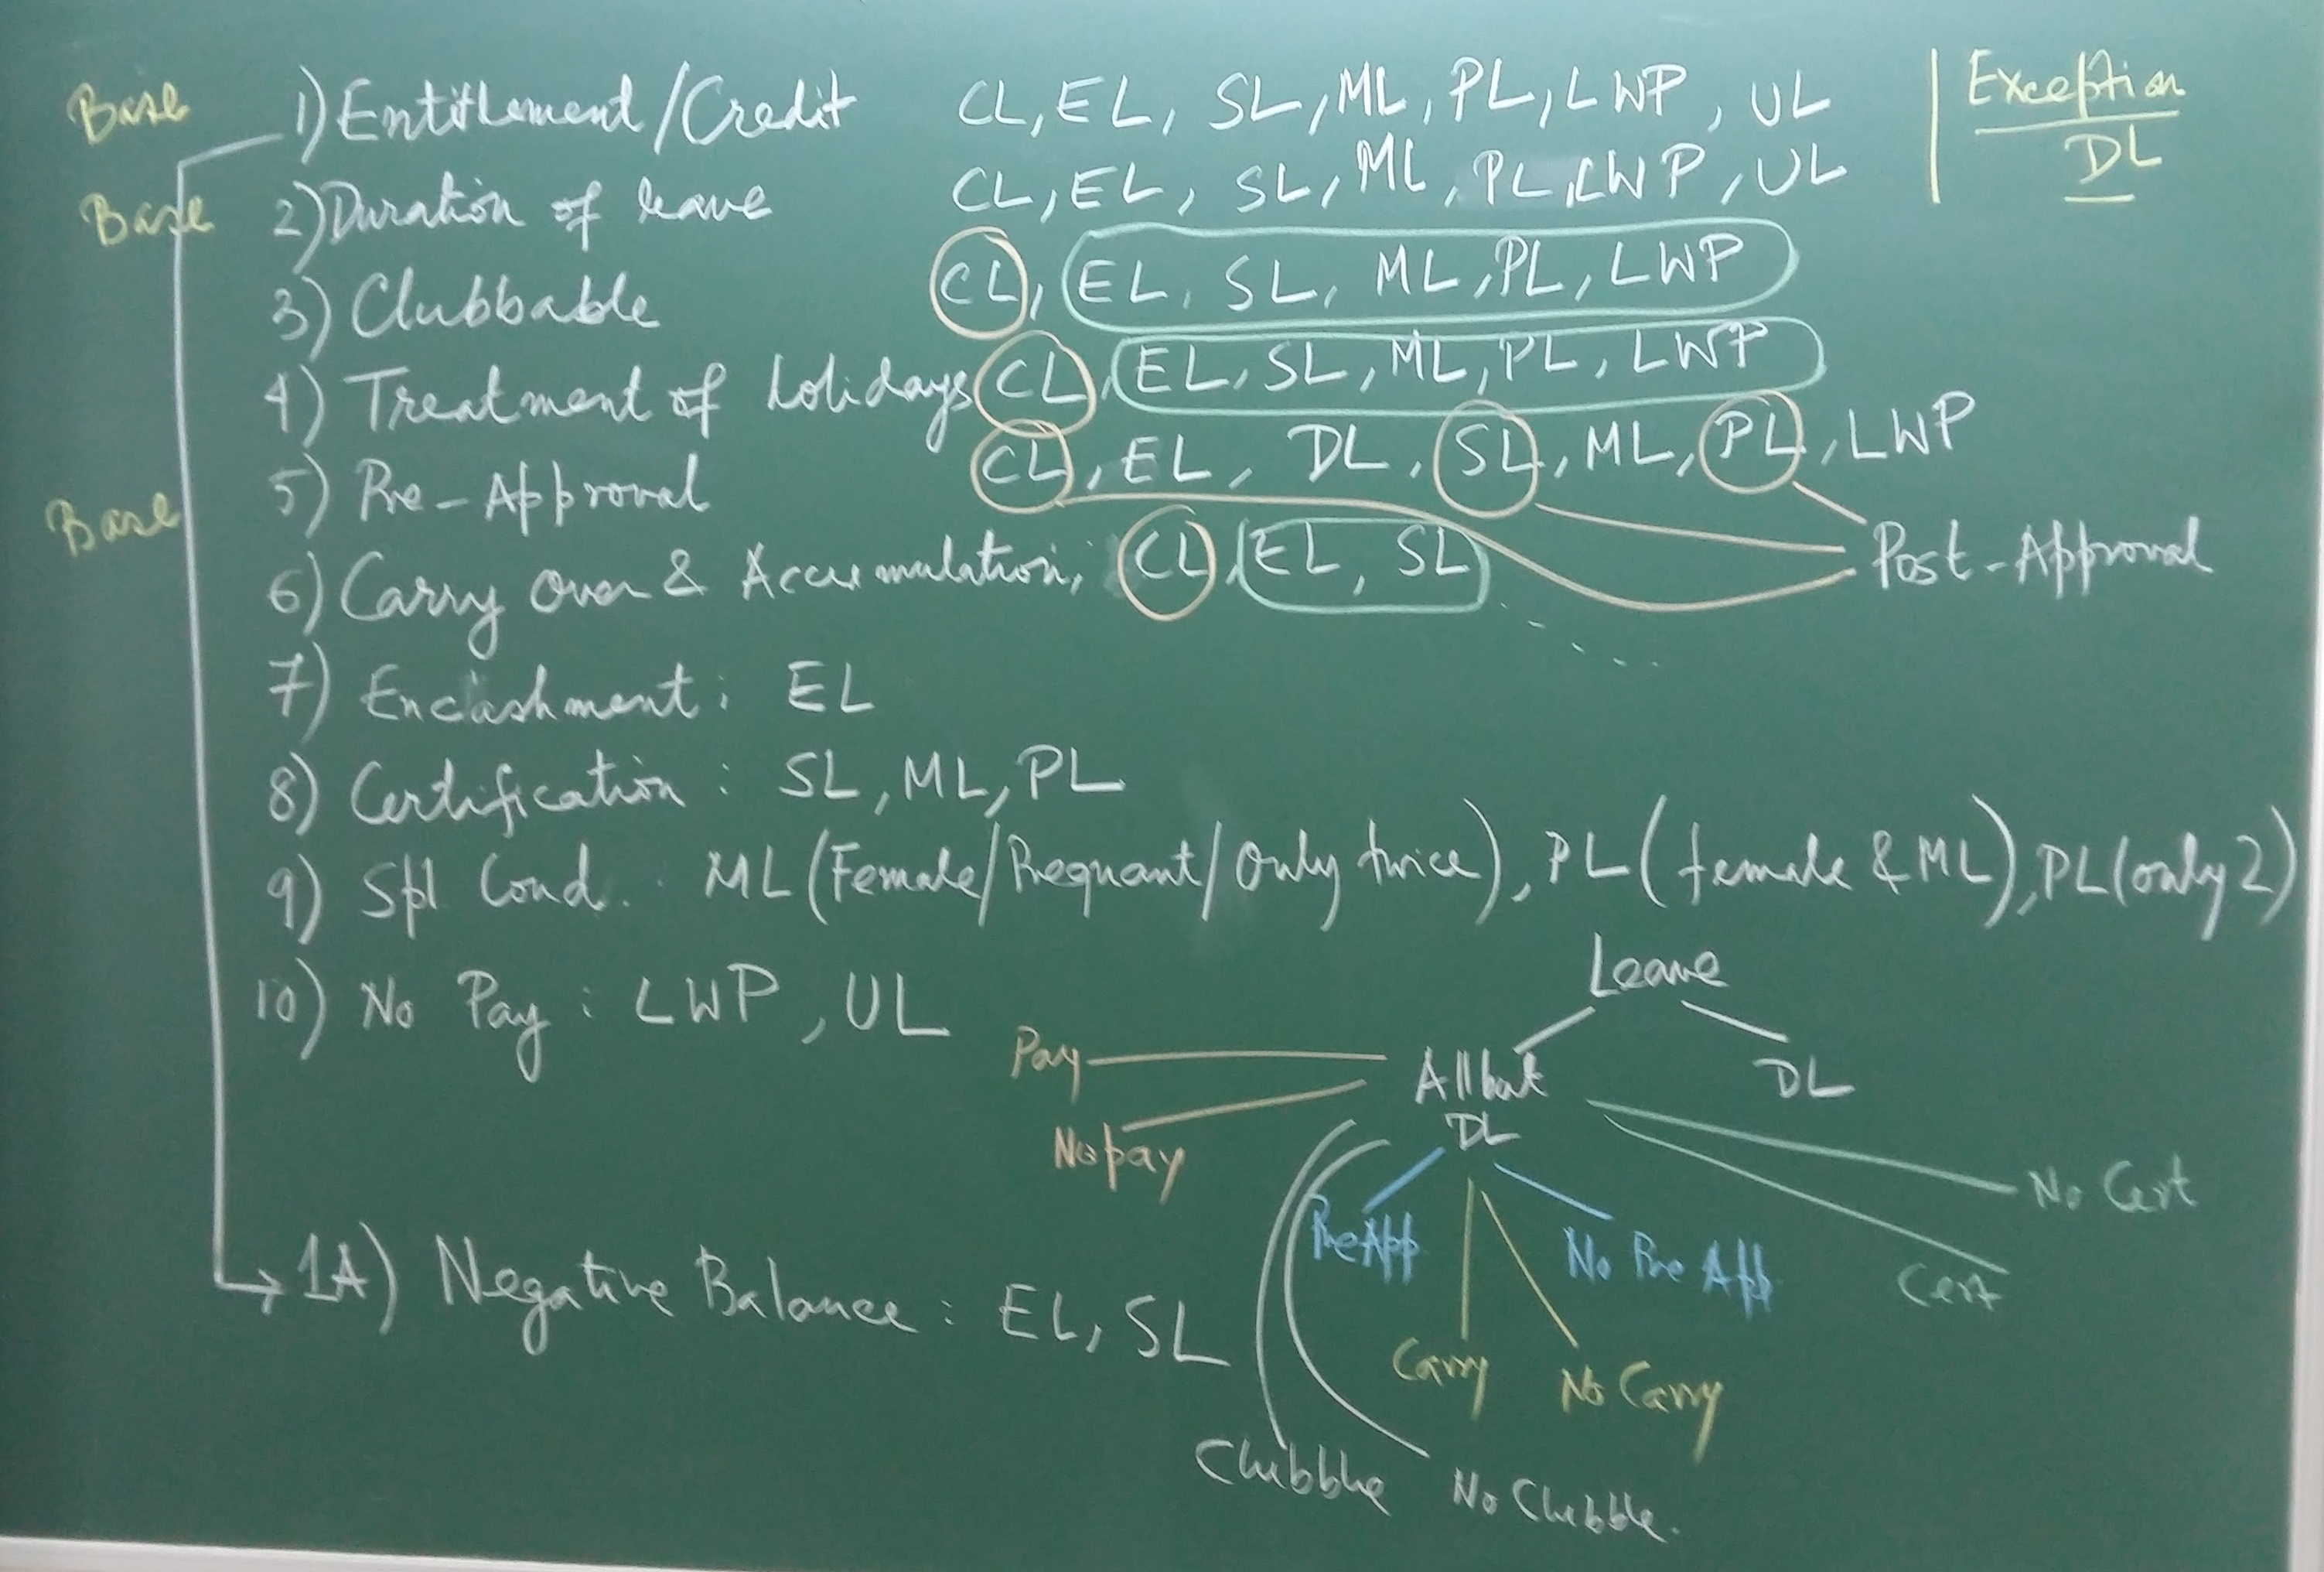 Base 1) Entitlement/Credit CL, EL, SL, ML, PL, LWP, UL | Exception
Base 2) Duration of leave CL, EL, SL, ML, PL, LWP, UL DL
3) Clubbable CL, EL, SL, ML, PL, LWP
4) Treatment of holidays CL, EL, SL, ML, PL, LWP
Base 5) Pre-Approval CL, EL, DL, SL, ML, PL, LWP
Post-Approval
6) Carry Over & Accumulation; CL, EL, SL
7) Encashment: EL
8) Certification: SL, ML, PL
9) Spl Cond. ML (Female/Pregnant/Only twice), PL (female & ML), PL (only 2)
10) No Pay: LWP, UL
Leave
Pay All but DL
DL
No pay
No Cert
Pre App No Pre App Cert
1A) Negative Balance: EL, SL
Carry No Carry
No Clubble.